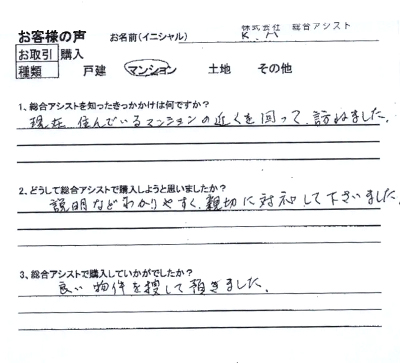 株式会社 総合アシスト
お客様の声 お名前(イニシャル) K.M
お取引 購入
種類 戸建 マンション 土地 その他
1、総合アシストを知ったきっかかけは何ですか?
現在住んでいるマンションの近くを回って、訪ねました。
2、どうして総合アシストで購入しようと思いましたか?
説明などわかりやすく、親切に対応して下さいました。
3、総合アシストで購入していかがでしたか?
良い物件を捜して頂きました。